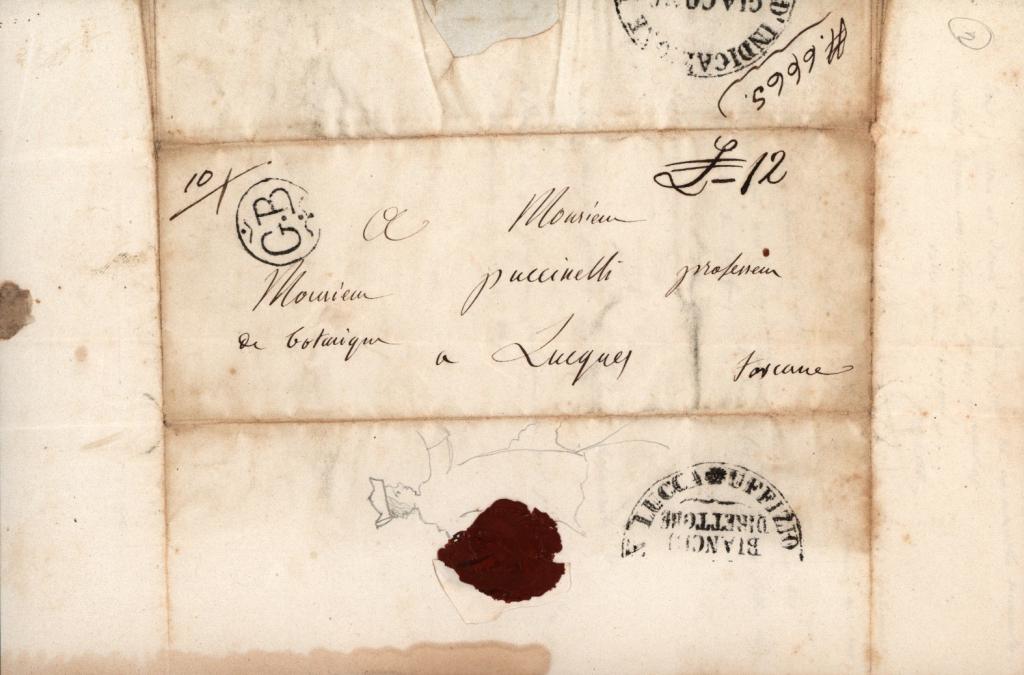 D'INDICAZIONE
GIACOMO
N. 6665.
12
10
G.B
A Monsieur
Monsieur puccinelli professeur
de botanique
a Lucques toscane
LUCCA UFFIZIO
DIRETTORE
BIANCHI